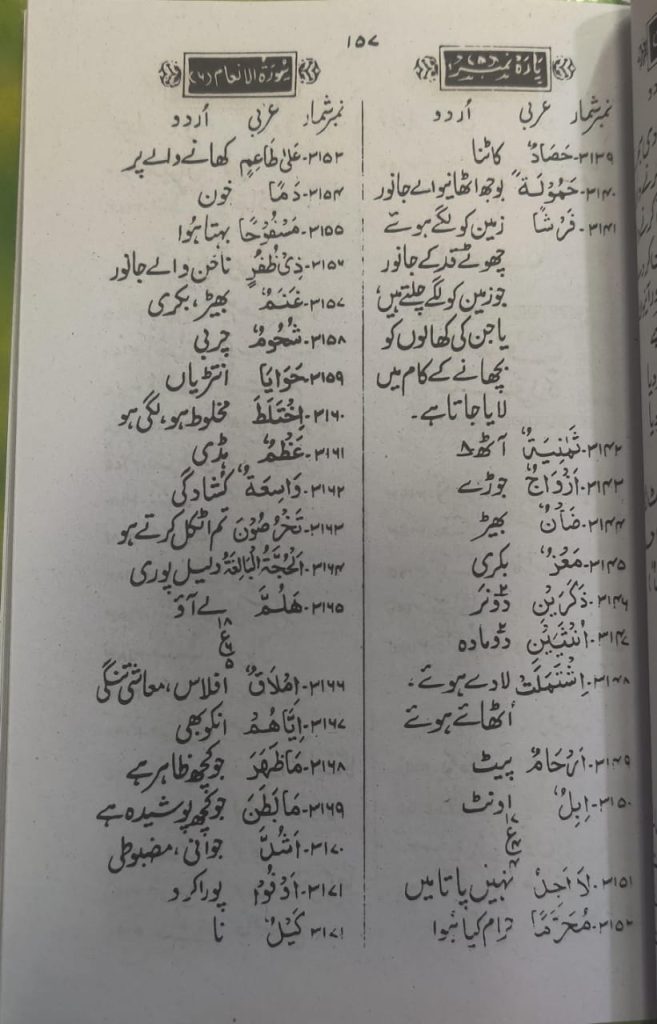 ۱۵۷
پارہ نمبر (۸)
نمبر شمار عربی اردو
۳۱۳۹۔ حَصَادٌ کاٹنا
۳۱۴۰۔ حَمُوْلَةً بوجھ اٹھانیوالے جانور
۳۱۴۱۔ فَرْشًا زمین کو لگے ہوئے
چھوٹے قد کے جانور
جو زمین کو لگے چلتے ہیں،
یا جن کی کھالوں کو
بچھانے کے کام میں
لایا جاتا ہے۔
۳۱۴۲۔ ثَمٰنِيَةٌ آٹھ ۸
۳۱۴۳۔ اَزْوَاجٌ جوڑے
۳۱۴۴۔ ضَاْنٌ بھیڑ
۳۱۴۵۔ مَعْزٌ بکری
۳۱۴۶۔ ذَكَرَيْنِ دو نر
۳۱۴۷۔ اُنْثَيَيْنِ دو مادہ
۳۱۴۸۔ اِشْتَمَلَتْ لادے ہوئے،
اٹھائے ہوئے
۳۱۴۹۔ اَرْحَامٌ پیٹ
۳۱۵۰۔ اِبِلٌ اونٹ
۱۷
ع
۴
۳۱۵۱۔ لَا اَجِدُ نہیں پاتا میں
۳۱۵۲۔ مُحَرَّمًا حرام کیا ہوا
سُوْرَةُ الْاَنْعَام (۶)
نمبر شمار عربی اُردو
۳۱۵۳۔ عَلٰی طَاعِمٍ کھانے والے پر
۳۱۵۴۔ دَمًا خون
۳۱۵۵۔ مَسْفُوْحًا بہتا ہُوا
۳۱۵۶۔ ذِیْ ظُفُرٍ ناخن والے جانور
۳۱۵۷۔ غَنَمٌ بھیڑ، بکری
۳۱۵۸۔ شُحُوْمٌ چربی
۳۱۵۹۔ حَوَايَا انتڑیاں
۳۱۶۰۔ اِخْتَلَطَ مخلوط ہو، لگی ہو
۳۱۶۱۔ عَظْمٌ ہڈی
۳۱۶۲۔ وَاسِعَةٌ کشادگی
۳۱۶۳۔ تَخْرُصُوْنَ تم اٹکل کرتے ہو
۳۱۶۴۔ اَلْحُجَّةُ الْبَالِغَةُ دلیل پوری
۳۱۶۵۔ هَلُمَّ لے آؤ
۱۸
ع
۵
۳۱۶۶۔ اِمْلَاقٌ افلاس، معاشی تنگی
۳۱۶۷۔ اِيَّاهُمْ انکو بھی
۳۱۶۸۔ مَا ظَهَرَ جو کچھ ظاہر ہے
۳۱۶۹۔ مَا بَطَنَ جو کچھ پوشیدہ ہے
۳۱۷۰۔ اَشُدَّ جوانی، مضبوطی
۳۱۷۱۔ اَوْفُوْا پورا کرو
۳۱۷۱۔ كَيْلٌ نا